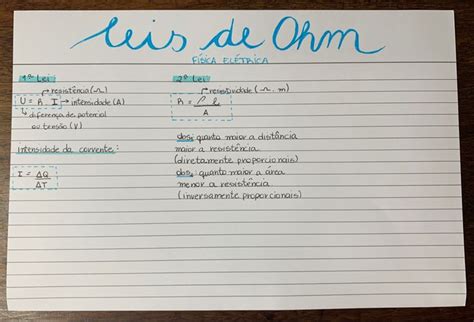 Leis de Ohm
FÍSICA ELÉTRICA
1ª Lei
resistência (Ω)
U = R . I → intensidade (A)
diferença de potencial
ou tensão (V)
intensidade da corrente:
I = ΔQ
ΔT
2ª Lei
resistividade (Ω . m)
R = ρ L
A
obs₁: quanto maior a distância
maior a resistência
(diretamente proporcionais)
obs₂: quanto maior a área
menor a resistência
(inversamente proporcionais)